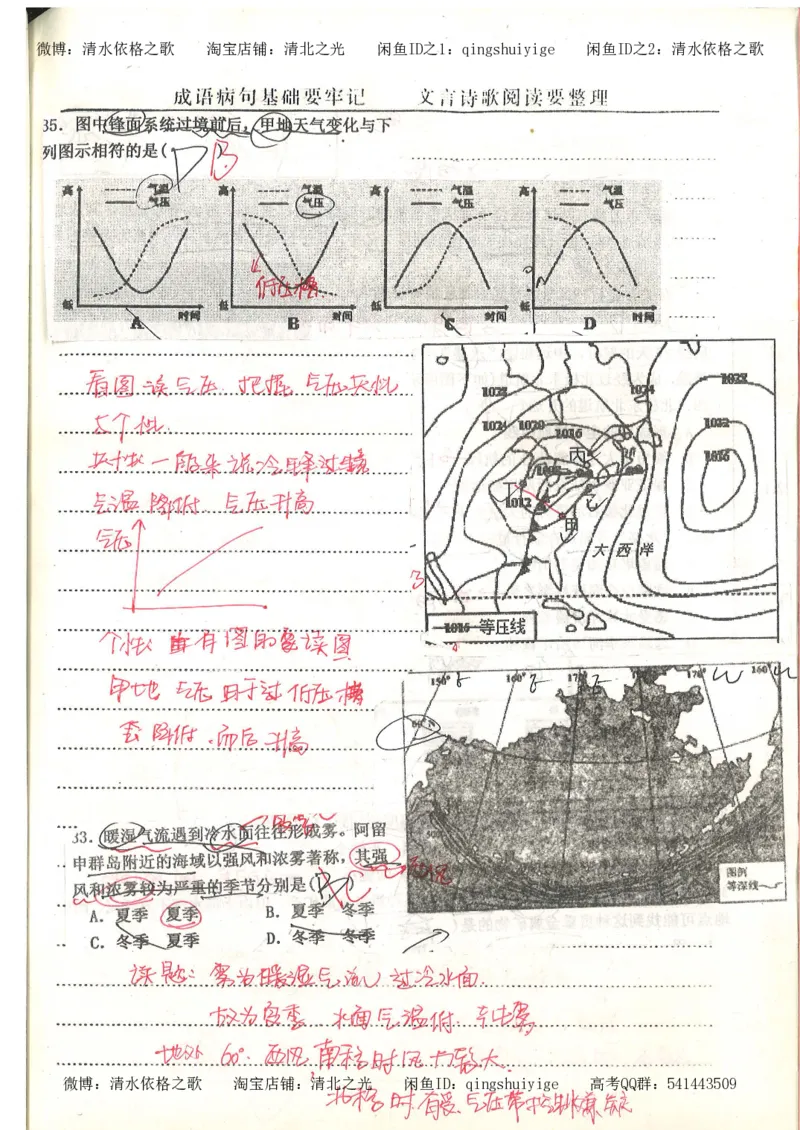 微博：清水依格之歌 淘宝店铺：清北之光 闲鱼ID之1：qingshuiyige 闲鱼ID之2：清水依格之歌
成语病句基础要牢记 文言诗歌阅读要整理
35．图中锋面系统过境前后，甲地天气变化与下
列图示相符的是( D ) B
高 气温 气压 低 时间 A
高 气温 气压 低 时间 B
高 气温 气压 低 时间 C
高 气温 气压 低 时间 D
低压槽
看图 读气压 把握 气压共性
与个性
共性 一般来说冷锋过境
气温降低 气压升高
气压
个性 图的 读图
甲地 气压由于过低压槽
降低 而后升高
1024 1022
1024 1020 1016 1022
丙 1016
丁 1012 乙
甲
大西洋
1016 等压线
150° E 160° E E 170° W 160° W
60° N
图例
等深线
33．暖湿气流遇到冷水面往往形成雾。阿留
申群岛附近的海域以强风和浓雾著称，其强
风和浓雾较为严重的季节分别是( ) C
A．夏季 夏季 B．夏季 冬季
C．冬季 夏季 D．冬季 冬季
读题：雾为暖湿气流过冷水面
故为夏季 水面气温低
地处60° 西风
微博：清水依格之歌 淘宝店铺：清北之光 闲鱼ID：qingshuiyige 高考QQ群：541443509